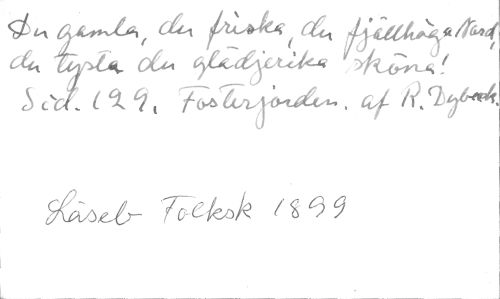 Du gamla, du friska, du fjällhöga Nord,
du tysta du glädjerika sköna!
Sid. 129. Fosterjorden. af R. Dybeck.
Läseb Folksk 1899